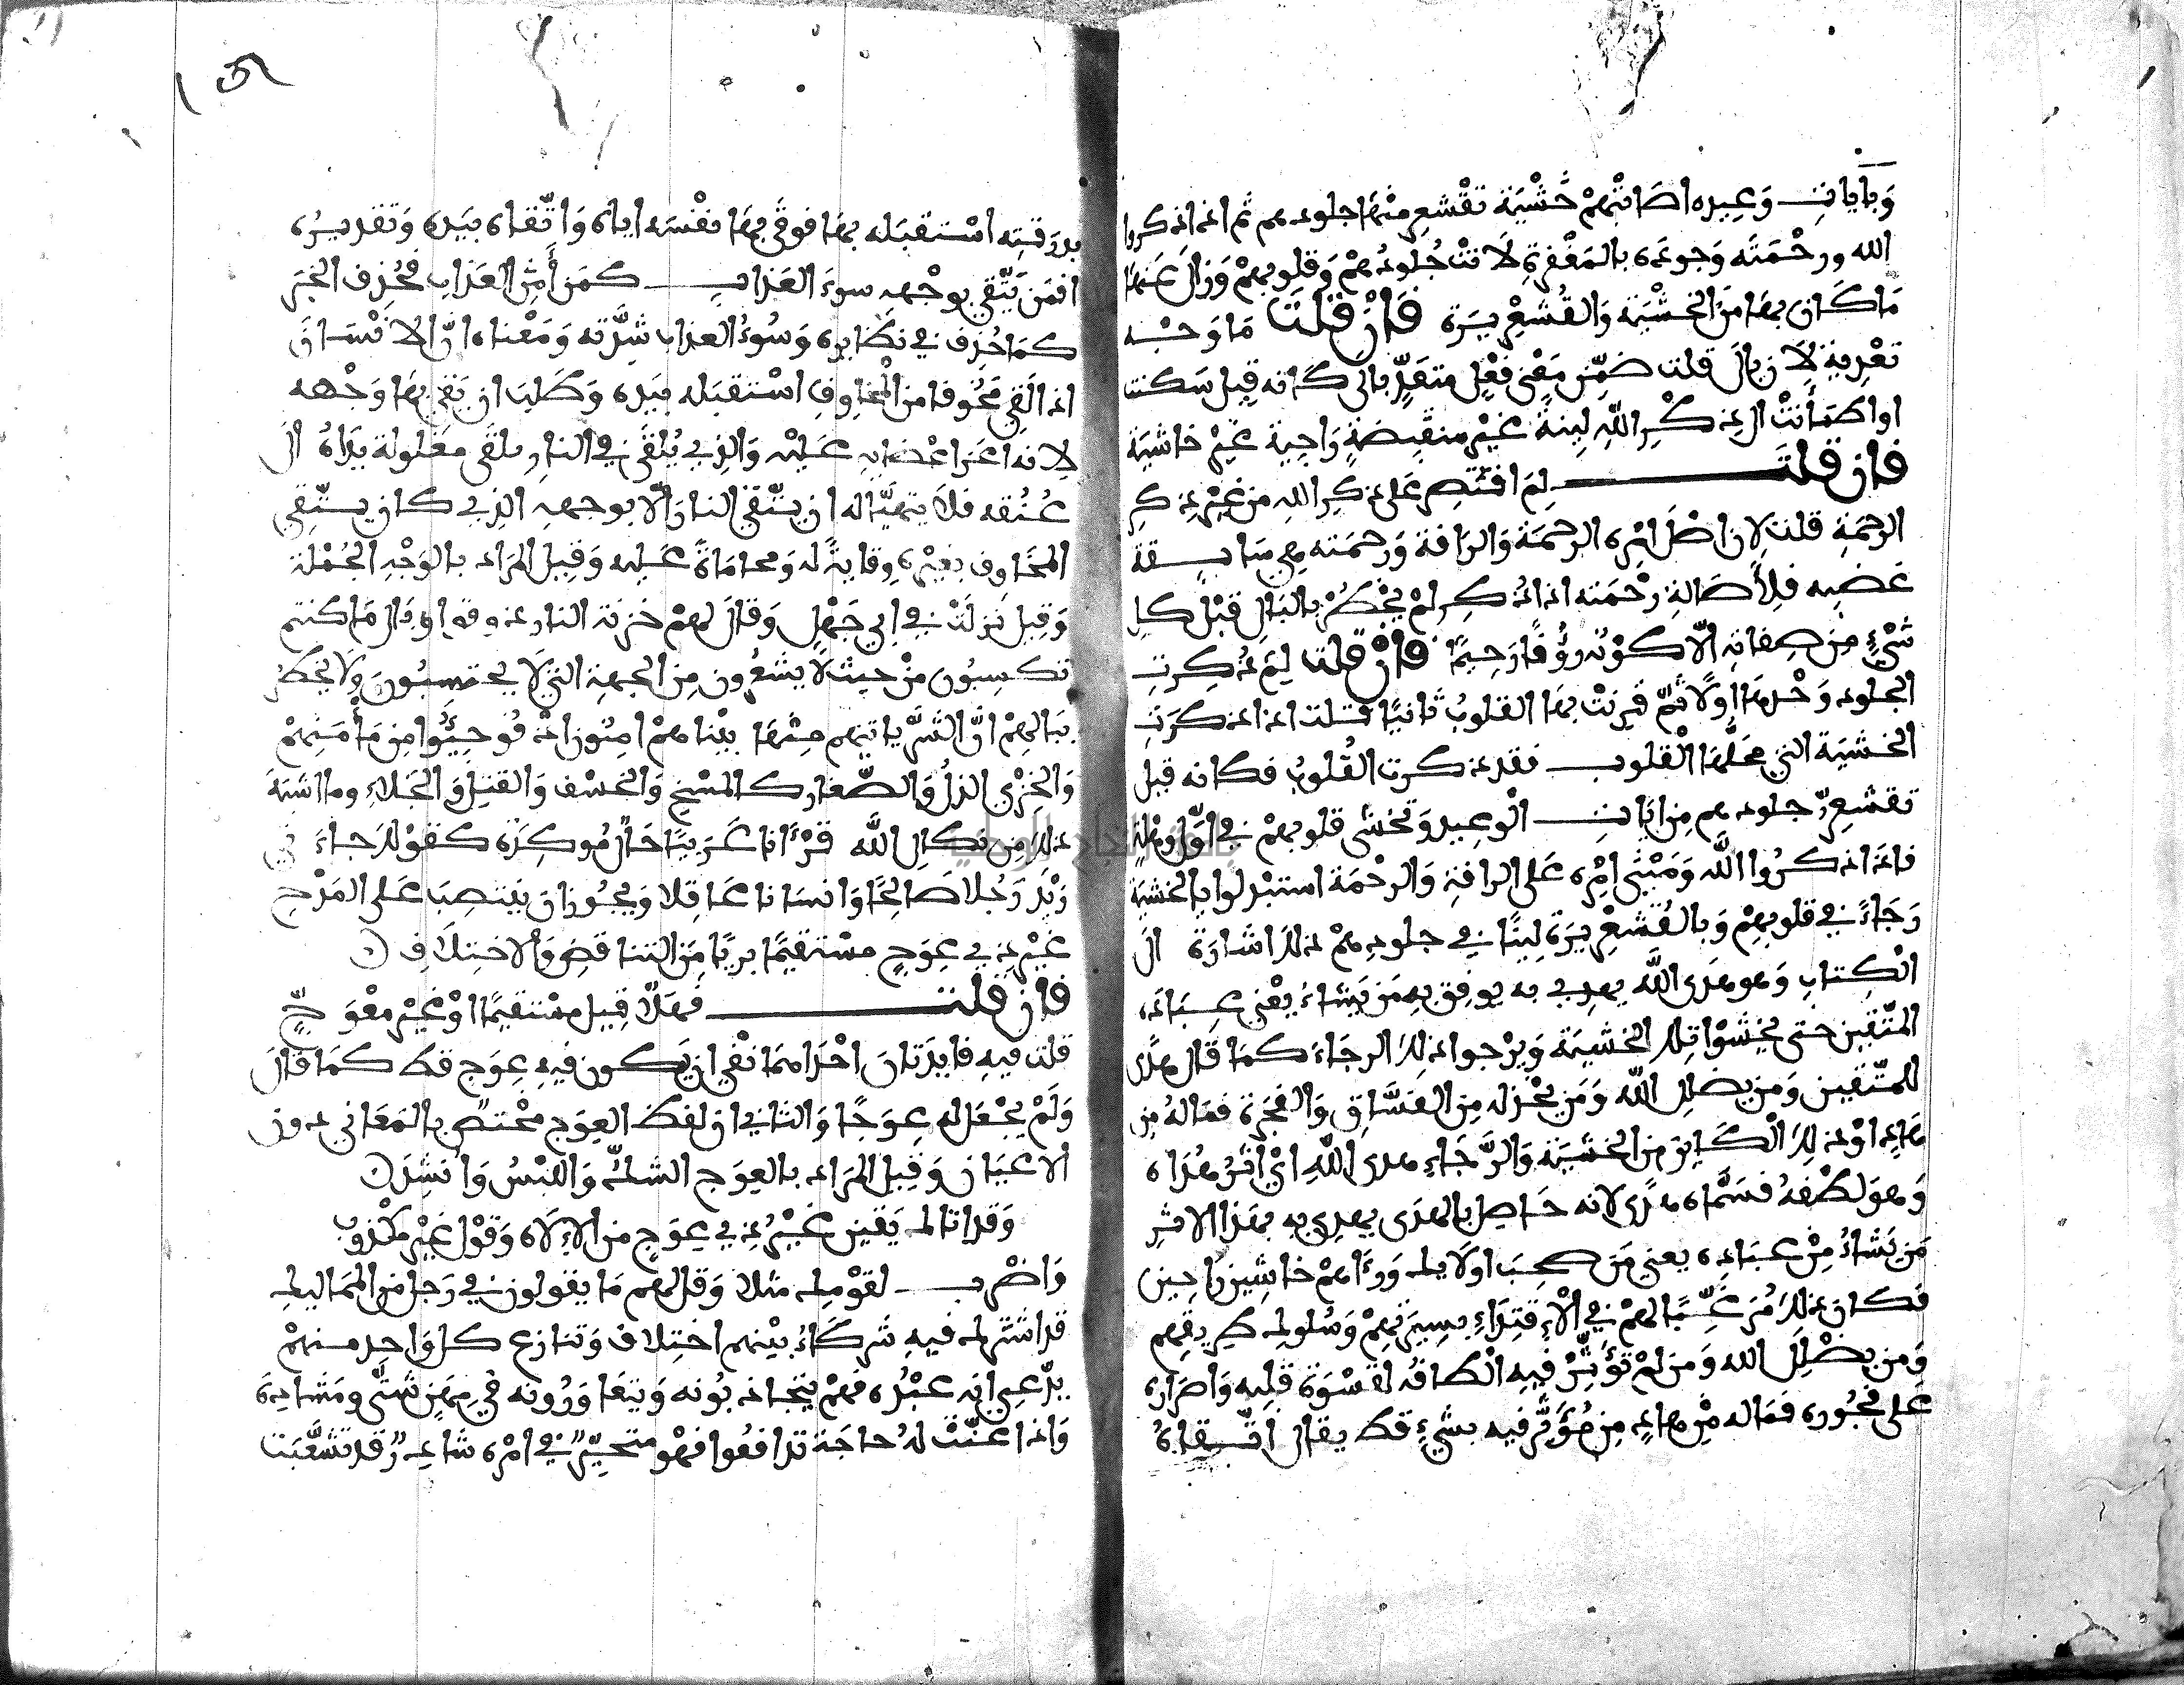 وَبآيات وَعِيده اصَابتْهمْ خَشْيَة تقْشعِر منْهَا جلودهم ثم اذا ذكروا
الله ورحْمَتَه وَجوده بالمَغْفرة لَانتْ جُلودُهمْ وَقلوبهمْ وَزالَ عَنهَا
مَا كَان بهَا مَن الخشْيَة وَالقُشعْرِيرَة فَانْ قُلْتَ مَا وَجْه
تعْدِية لَان بالى قلت ضمّن مَعْنى فعْل متعَدٍّ بالى كانه قِيل سَكنت
او اطمَأنتْ الى ذكْرِ اللهِ لينةً غيْر منقَبِضةٍ رَاجِية غيْر خاشيَة
فان قلتَ لِمَ اقتصِر عَلى ذكرِ اللهِ من غيْر ذكرِ
الرحمَةِ قلت لان اصْلَ امْرِه الرحمَة وَالرَافة وَرحمَته هي سَابـقة
غضبه فلِأصَالةِ رحْمَته اذا ذُكر لمْ يخْطُرْ بالبَالِ قبْل كل
شَيْءٍ مِن صِفاتِه الّا كوْنُه رؤُفًا رَحِيمًا فانْ قلت لِمَ ذُكِرتِ
الجلود وَحْدهَا اوّلًا ثمَّ قرِنتْ بهَا القلوبُ ثانيًا قلت اذا ذكرَتِ
الخشيَة التي مَحَلُّهَا الْقلوب فقد ذكرت القُلوبُ فكانه قيل
تقشعِرّ جلودهم مِن آيَات الْوعِيد وَتخشَى قلوبهمْ في اوّل وهْلةٍ
فاذَا ذكرُوا اللَّه وَمَبْنَى امْرِه عَلى الرافةِ وَالرحْمَة استبْدلوا بالخشيَة
رَجَاءً في قلوبهِمْ وَبالقُشعْرِيرَة لِينًا في جلودِهمْ ذلك اشارَة الَى
الْكِتاب وَهو هدَى اللَّه يهدِي به يوفق به مَن يَشاءُ يعْني عِبَادَه
المتّقِين حَتى يخْشَوْا تِلك الخشيَة وَيرْجوا ذلك الرجَاءَ كمَا قَال هدًى
للمتّقين وَمن يضلل اللّه وَمَن يخْذله مِن الفسَّاق وَالفجَرَة فمَا لهُ مِن
هَادٍ اوْ ذلكَ الْكَائن من الخشيَة وَالرَّجَاءِ هدى اللّه ايْ اثرُ هُدَاه
وَهوَ لطْفهُ فسَمَّاه هدًى لانه حَاصِل بالهدَى يهدِي به بهَذا الاثرِ
مَن يَشاءُ مِنْ عبَادِه يعني مَن صحِبَ اولَئك وَرءَاهمْ خاشِين راجِين
فكان ذلكَ مُرَغِّبًا لهمْ في الْاقتِدَاءِ بسِيرَتِهِمْ وَسُلوك طرِيقهم
وَمن يضْلِلِ الله وَمن لمْ تؤَثِّرْ فِيه الْطافُه لقسْوَة قلبِه وَاصرَاره
عَلى فجُوره فمَا له مِنْ هادٍ مِن مُؤَثّر فيه بشَيءٍ قط يقال اتّـقاهُ
بدرَقتِه اسْتقبَله بهَا فوقَى بهَا نفْسَه اياه وَاتّقاه بيَده وَتقديرُه
افمَن يَّتّقي بوجْهه سوءَ العَذابِ كمَن أَمِن العَذابَ فحُذِف الخبَر
كمَا حُذِف في نظَايره وَسُوءُ العذاب شِدَّته وَمَعْناه انّ الانْسَان
اذا لَقِي مَخُوفا من المخاوِفِ اسْتقبَله بيَده وَطَلبَ ان يَقي بهَا وَجْهه
لانه اعَز اعْضَايِه عَليْه وَالذِي يُلقَى في النار يلقَى مغلولة يدَاهُ الَى
عُنُقه فلَا يتهيَّأ له ان يتّقي النارَ الّا بوجههِ الذِي كان يـتّقِي
المخَاوِف بغيْرِه وِقايةً له وَمحامَاةً عَليه وَقِيل المرَاد بالوَجْهِ الجُمْلة
وَقيل نزلَتْ في ابي جَهْلٍ وَقالَ لهمْ خزَنة النار ذوقوا وبَال مَا كنتم
تكسِبُون منْ حيث لَا يشعُرون مِن الجهةِ التي لَا يحتسِبُون وَلَا يخطُر
بِبَالهِمْ انّ الشَّرّ ياتيهم مِنْهَا بيْنا همْ امِنُون اذْ فُوجِئُوا مِن مَأْمَنِهمْ
وَالخِزْي الذلُّ وَالصَّغار كالمسْخ وَالخسْف وَالقتلِ وَالجَلاءِ وما اشبَهَ
ذلك مِن نكالِ اللَّه قرْءَانا عَرَبيًا حَالٌ مُوكِدَة كقوْلك جاءَني
زيْد رَجُلا صَالحًا وَانسَانا عَاقلا وَيجُوز ان ينتصِبَ عَلى المَدْحِ
غيْر ذِي عِوَجٍ مسْتقيمًا بريًا مِن التناقضِ وَالاختلَافِ
فان قلت فهَلّا قِيل مسْتقيمًا اوْ غيْر معْوَجٍّ
قلت فيهِ فايدَتان احْدَاهمَا نفْي ان يَكون فيهِ عِوَج قط كمَا قَالَ
وَلَمْ يجْعَل له عِوَجًا وَالثاني ان لفظ العِوَج مخْتصّ بالمَعَاني دون
الاعيَان وَقيل المرَاد بالعِوَج الشكُّ وَاللبْسُ وَانشِدَ
وَقد اتاك يَقين غيْرُ ذِي عِوَجٍ من الإلَاه وَقوْل غيْر مكْذوب
وَاضْرب لقوْمك مثلا وَقل لهم مَا يقولون في رَجل من المَماليك
قد اشترَك فيهِ شركَاءُ بيْنهم اخْتِلاف وَتنازع كل وَاحِد منهمْ
يدّعِي انه عبْدُه فهمْ يتجاذبُونه وَيتعَاوَرُونه في مِهَنٍ شتَّى ومَشادِهَ
وَاذا عَنّتْ لهُ حاجَة تدَافعُوا فهْو متحيِّرٌ في امْرِه شادهٌ قد تشعَّبت